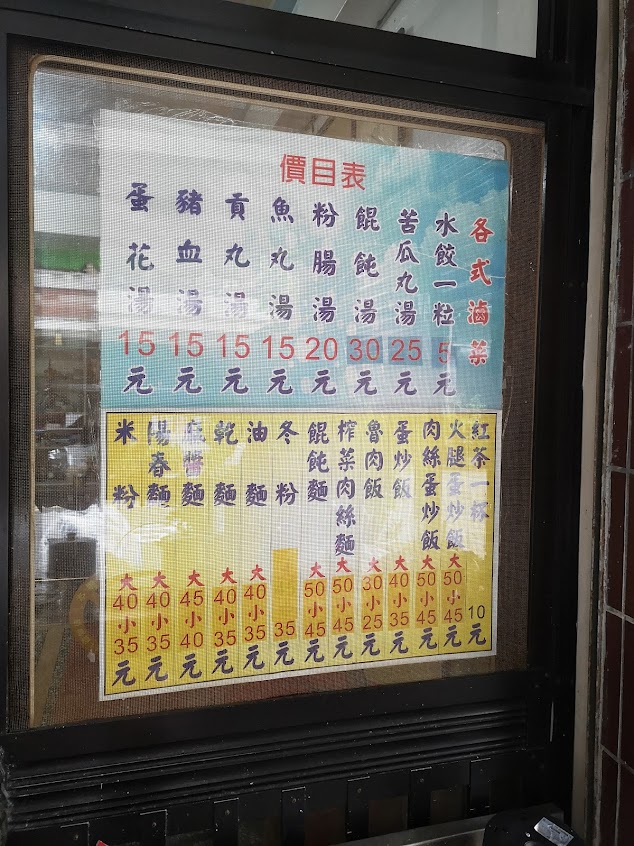 價目表
各式滷菜
水餃一粒5元
苦瓜丸湯25元
餛飩湯30元
粉腸湯20元
魚丸湯15元
貢丸湯15元
豬血湯15元
蛋花湯15元
紅茶一杯10元
火腿蛋炒飯大50小45元
肉絲蛋炒飯大50小45元
蛋炒飯大40小35元
魯肉飯大30小25元
榨菜肉絲麵大50小45元
餛飩麵大50小45元
冬粉35元
油麵大40小35元
乾麵大40小35元
麻醬麵大45小40元
陽春麵大40小35元
米粉大40小35元